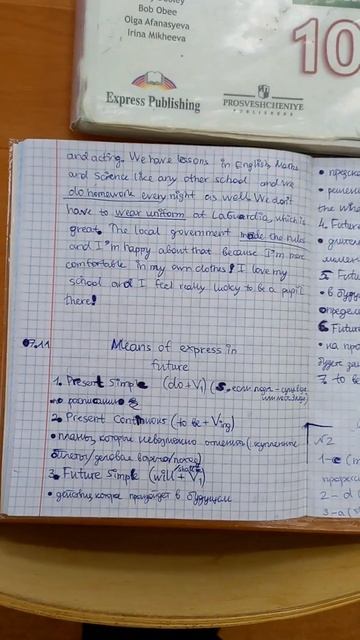 Bob Obee
Olga Afanasyeva
Irina Mikheeva
10
Express Publishing
PROSVESHCHENIYE
PUBLISHERS
and acting. We have lessons in English, Maths
and science like any other school and we
do homework every night as well. We don't
have to wear uniform at LaGuardia, which is
great. The local government made the rules
and I'm happy about that because I'm more
comfortable in my own clothes! I love my
school and I feel really lucky to be a pupil
there!
07.11
Means of express in
future
1. Present Simple (do+V1) (s, если
по расписанию
2. Present Continuous (to be + Ving)
• планы, которые невозможно отменить (купленные
билеты/деловая встреча/поезд)
3. Future Simple (will/shall + V1)
• действие, которое произойдет в будущем
4. Future
5. Futu
• в будущ
определ
6. Future
• на про
7. to be
N2
1-c
2-d
3-a